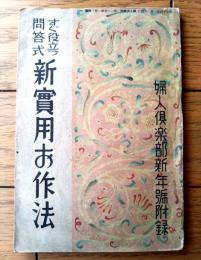 婦人倶樂部新年號附録
すぐ役立つ
問答式
新實用お作法